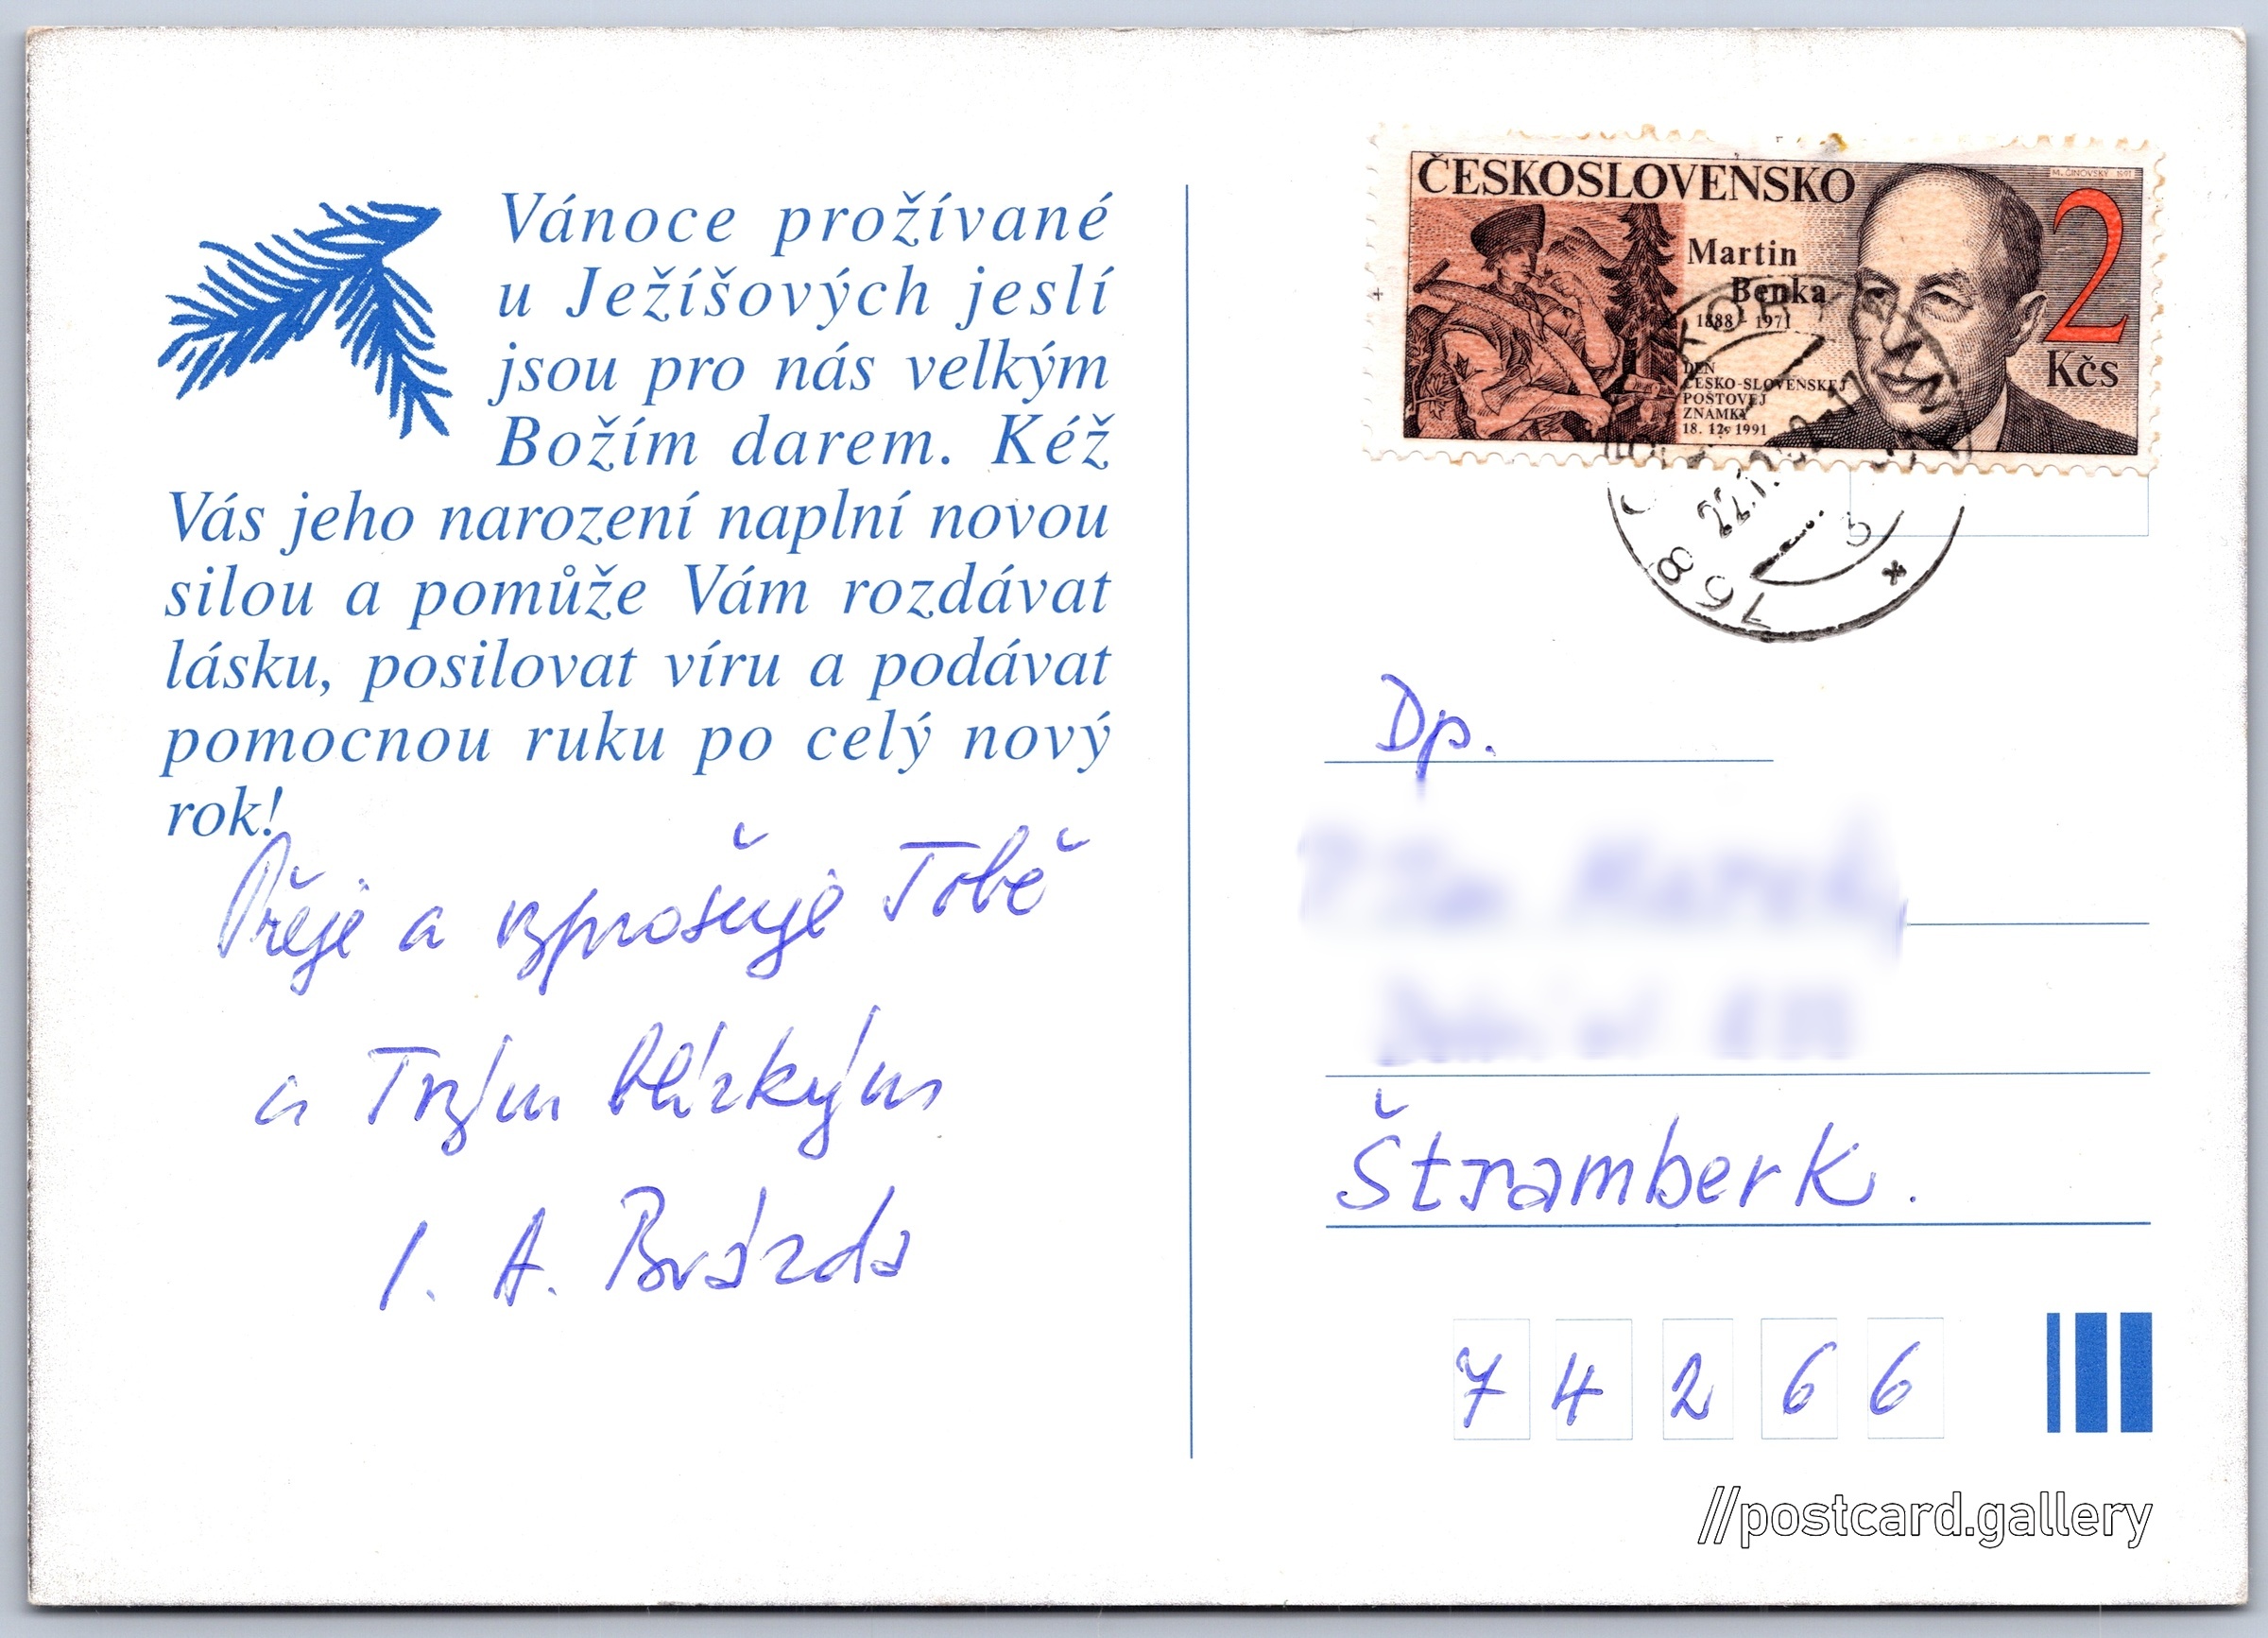 Vánoce prožívané
u Ježíšových jeslí
jsou pro nás velkým
Božím darem. Kéž
Vás jeho narození naplní novou
silou a pomůže Vám rozdávat
lásku, posilovat víru a podávat
pomocnou ruku po celý nový
rok!
Přeje a vyprošuje Tobě
a Tvým blízkým
I. A. Brázda
ČESKOSLOVENSKO
M. ČINOVSKÝ 1991
2
Kčs
Martin
Benka
1888 - 1971
DEN
ČESKO-SLOVENSKEJ
POŠTOVEJ
ZNÁMKY
18. 12. 1991
768
Dp.
Štramberk.
7 4 2 6 6
//postcard.gallery